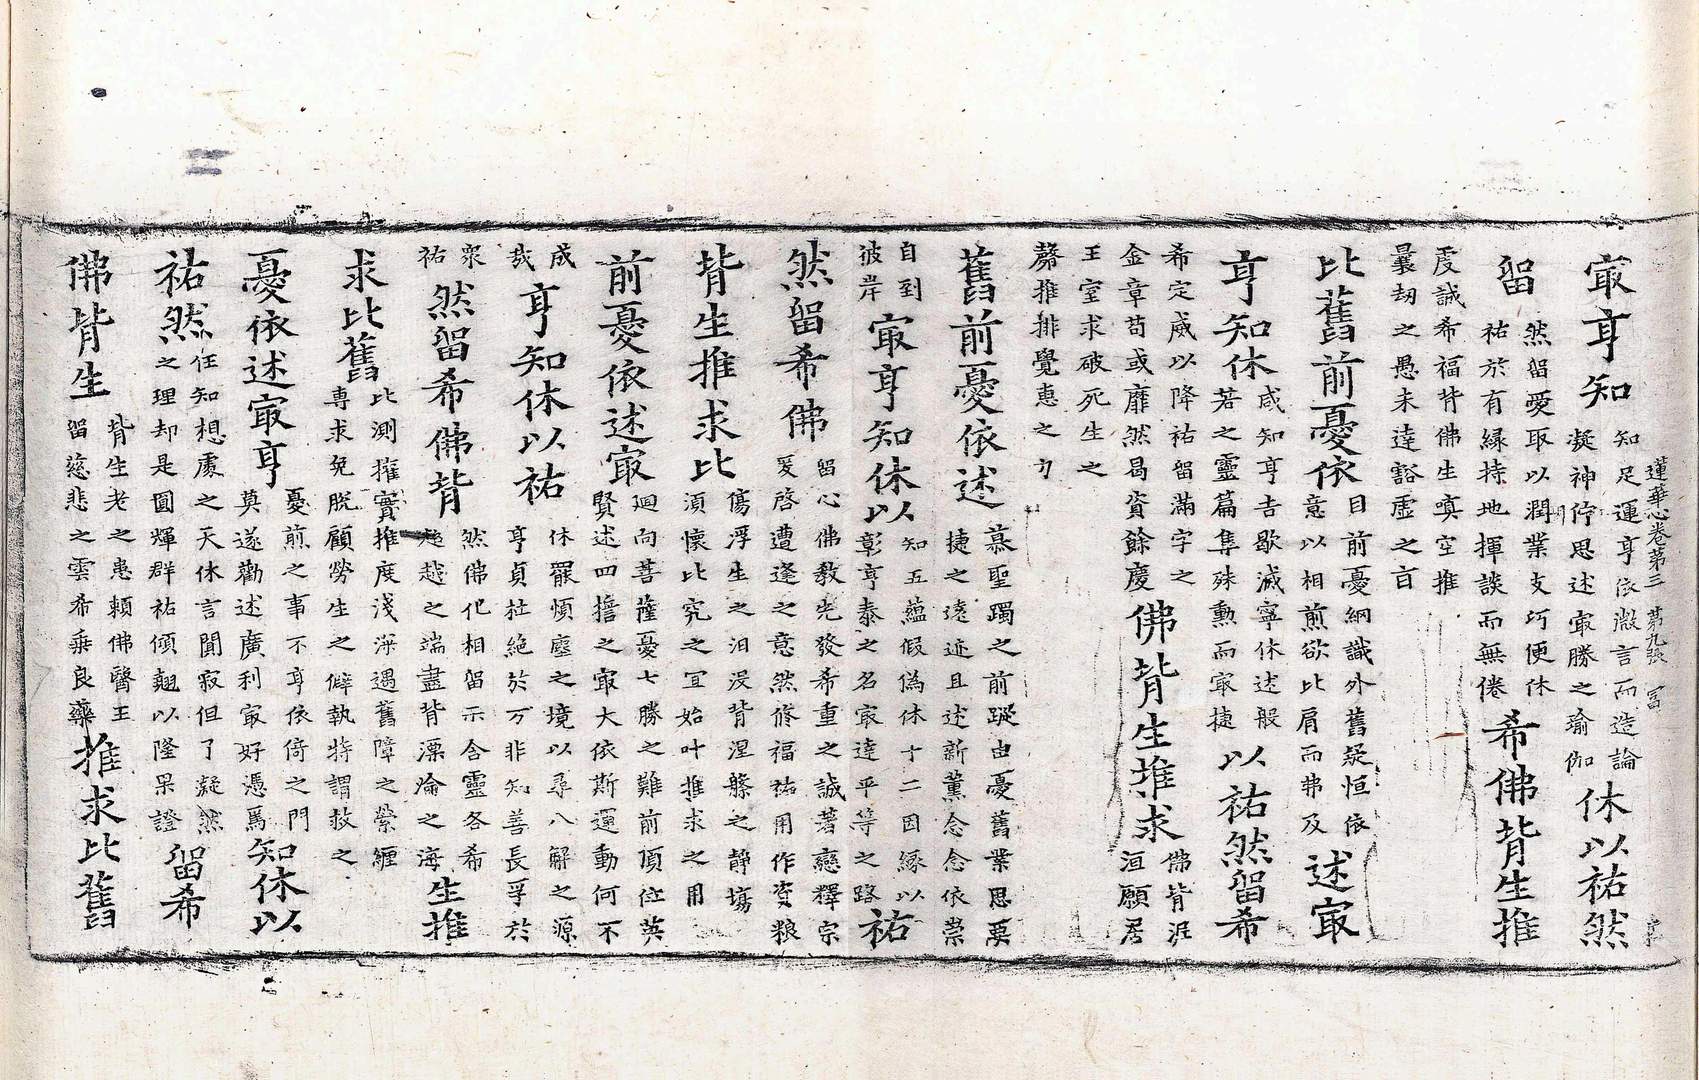 蓮華心卷第三 第九張 冨
冣亨知
知足運亨依微言而造論
凝神佇思述冣勝之瑜伽
休以祐然
留
然留愛取以潤業支巧便休
祐於有緣持地揮談而無倦
希佛背生推
虔誠希福背佛生嗔空推
曩劫之愚未達豁虛之言
比舊前憂依
目前憂網識外舊疑恒依
意以相煎欲比肩而弗及
述冣
亨知休
咸知亨吉歇滅寧休述般
若之靈篇隼殊勳而冣捷
以祐然留希
希定威以降祐留滿字之
金章苟或靡然曷資餘慶
佛背生推求
佛背涅
洹願居
王室求破死生之
罄推排覺惠之力
舊前憂依述
慕聖躅之前蹤由憂舊業思要
捷之遠迹且述新薰念念依崇
自到
彼岸
冣亨知休以
知五蘊假偽休十二因緣以
彰亨泰之名冣達平等之路
祐
然留希佛
留心佛教先發希重之誠著戀釋宗
爰啓遭逢之意然修福祐用作資粮
背生推求比
傷浮生之汨沒背涅槃之靜塲
須懷比究之宜始叶推求之用
前憂依述冣
迴向菩薩憂七勝之難前頂位英
賢述四擔之冣大依斯運動何不
成
哉
亨知休以祐
休罷煩塵之境以尋八解之源
亨貞杜絶於万非知善長孚於
衆
祐
然留希佛背
然佛化相留示含靈各希
超越之端盡背漂淪之海
生推
求比舊
比測摧實推度淺深遇舊障之縈纏
専求免脫顧勞生之僻執特謂救之
憂依述冣亨
憂煎之事不亨依倚之門
莫遂勸述廣利冣好憑焉
知休以
祐然
任知想處之天休言聞寂但了凝然
之理却是圓輝群祐傾翹以隆果證
留希
佛背生
背生老之患頼佛醫王
留慈悲之雲希乗良藥
推求比舊